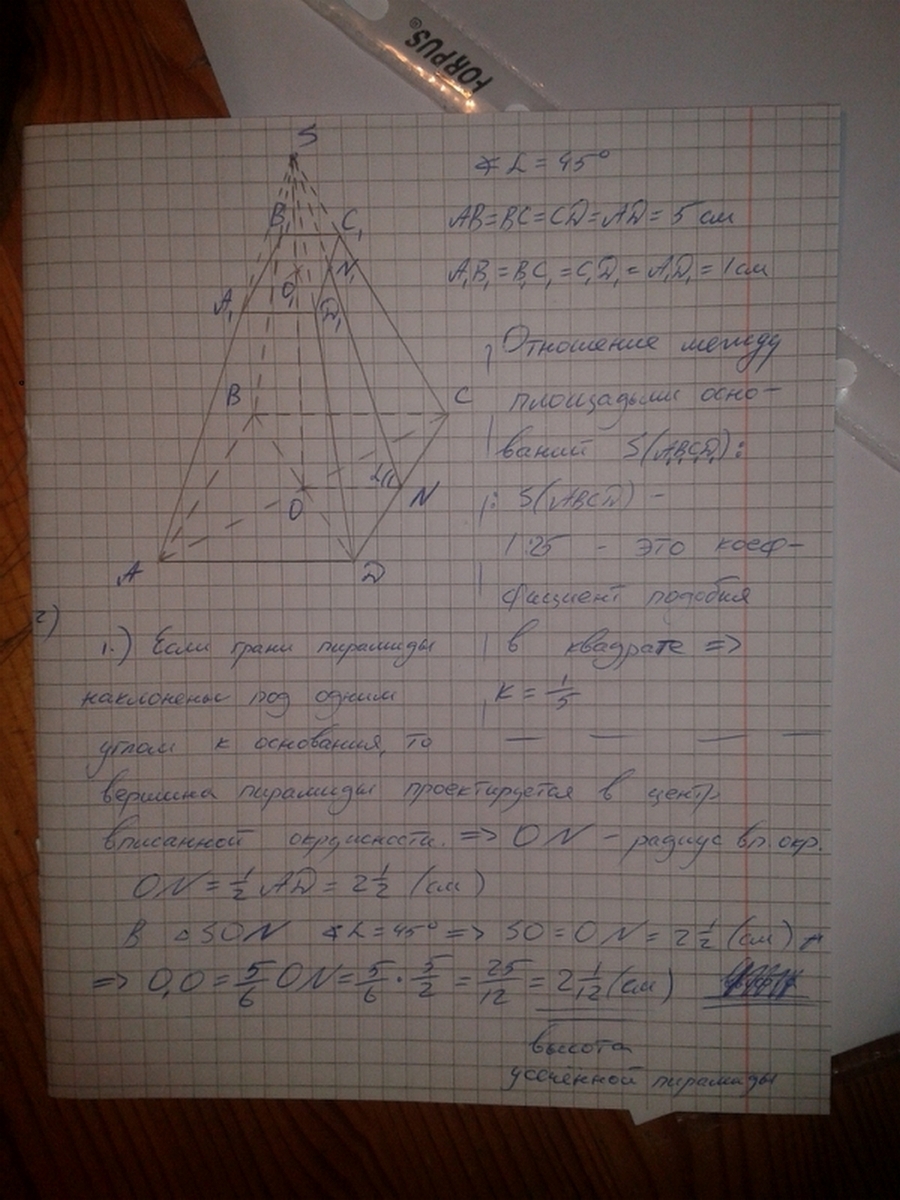 FORPUS®
S
∢ α = 45°
B₁ C₁
AB=BC=CD=AD = 5 см
N₁
A₁B₁=B₁C₁=C₁D₁=A₁D₁ = 1 см
O₁
A₁ D₁
Отношение между
B C
площадьми осно-
ваний S(A₁B₁C₁D₁):
α N
: S(ABCD) -
O
1:25 - это коеф-
A D
фициент подобия
2)
1.) Если грани пирамиды
в квадрате =>
наклонены под одним
k = 1/5
углом к основания, то
вершина пирамиды проектируется в центр
вписанной окружности. => ON - радиус вп. окр.
ON = 1/2 AD = 2 1/2 (см)
В △SON ∢α = 45° => SO = ON = 2 1/2 (см)
=> O₁O = 5/6 ON = 5/6 · 5/2 = 25/12 = 2 1/12 (см)
высота
усечённой пирамиды